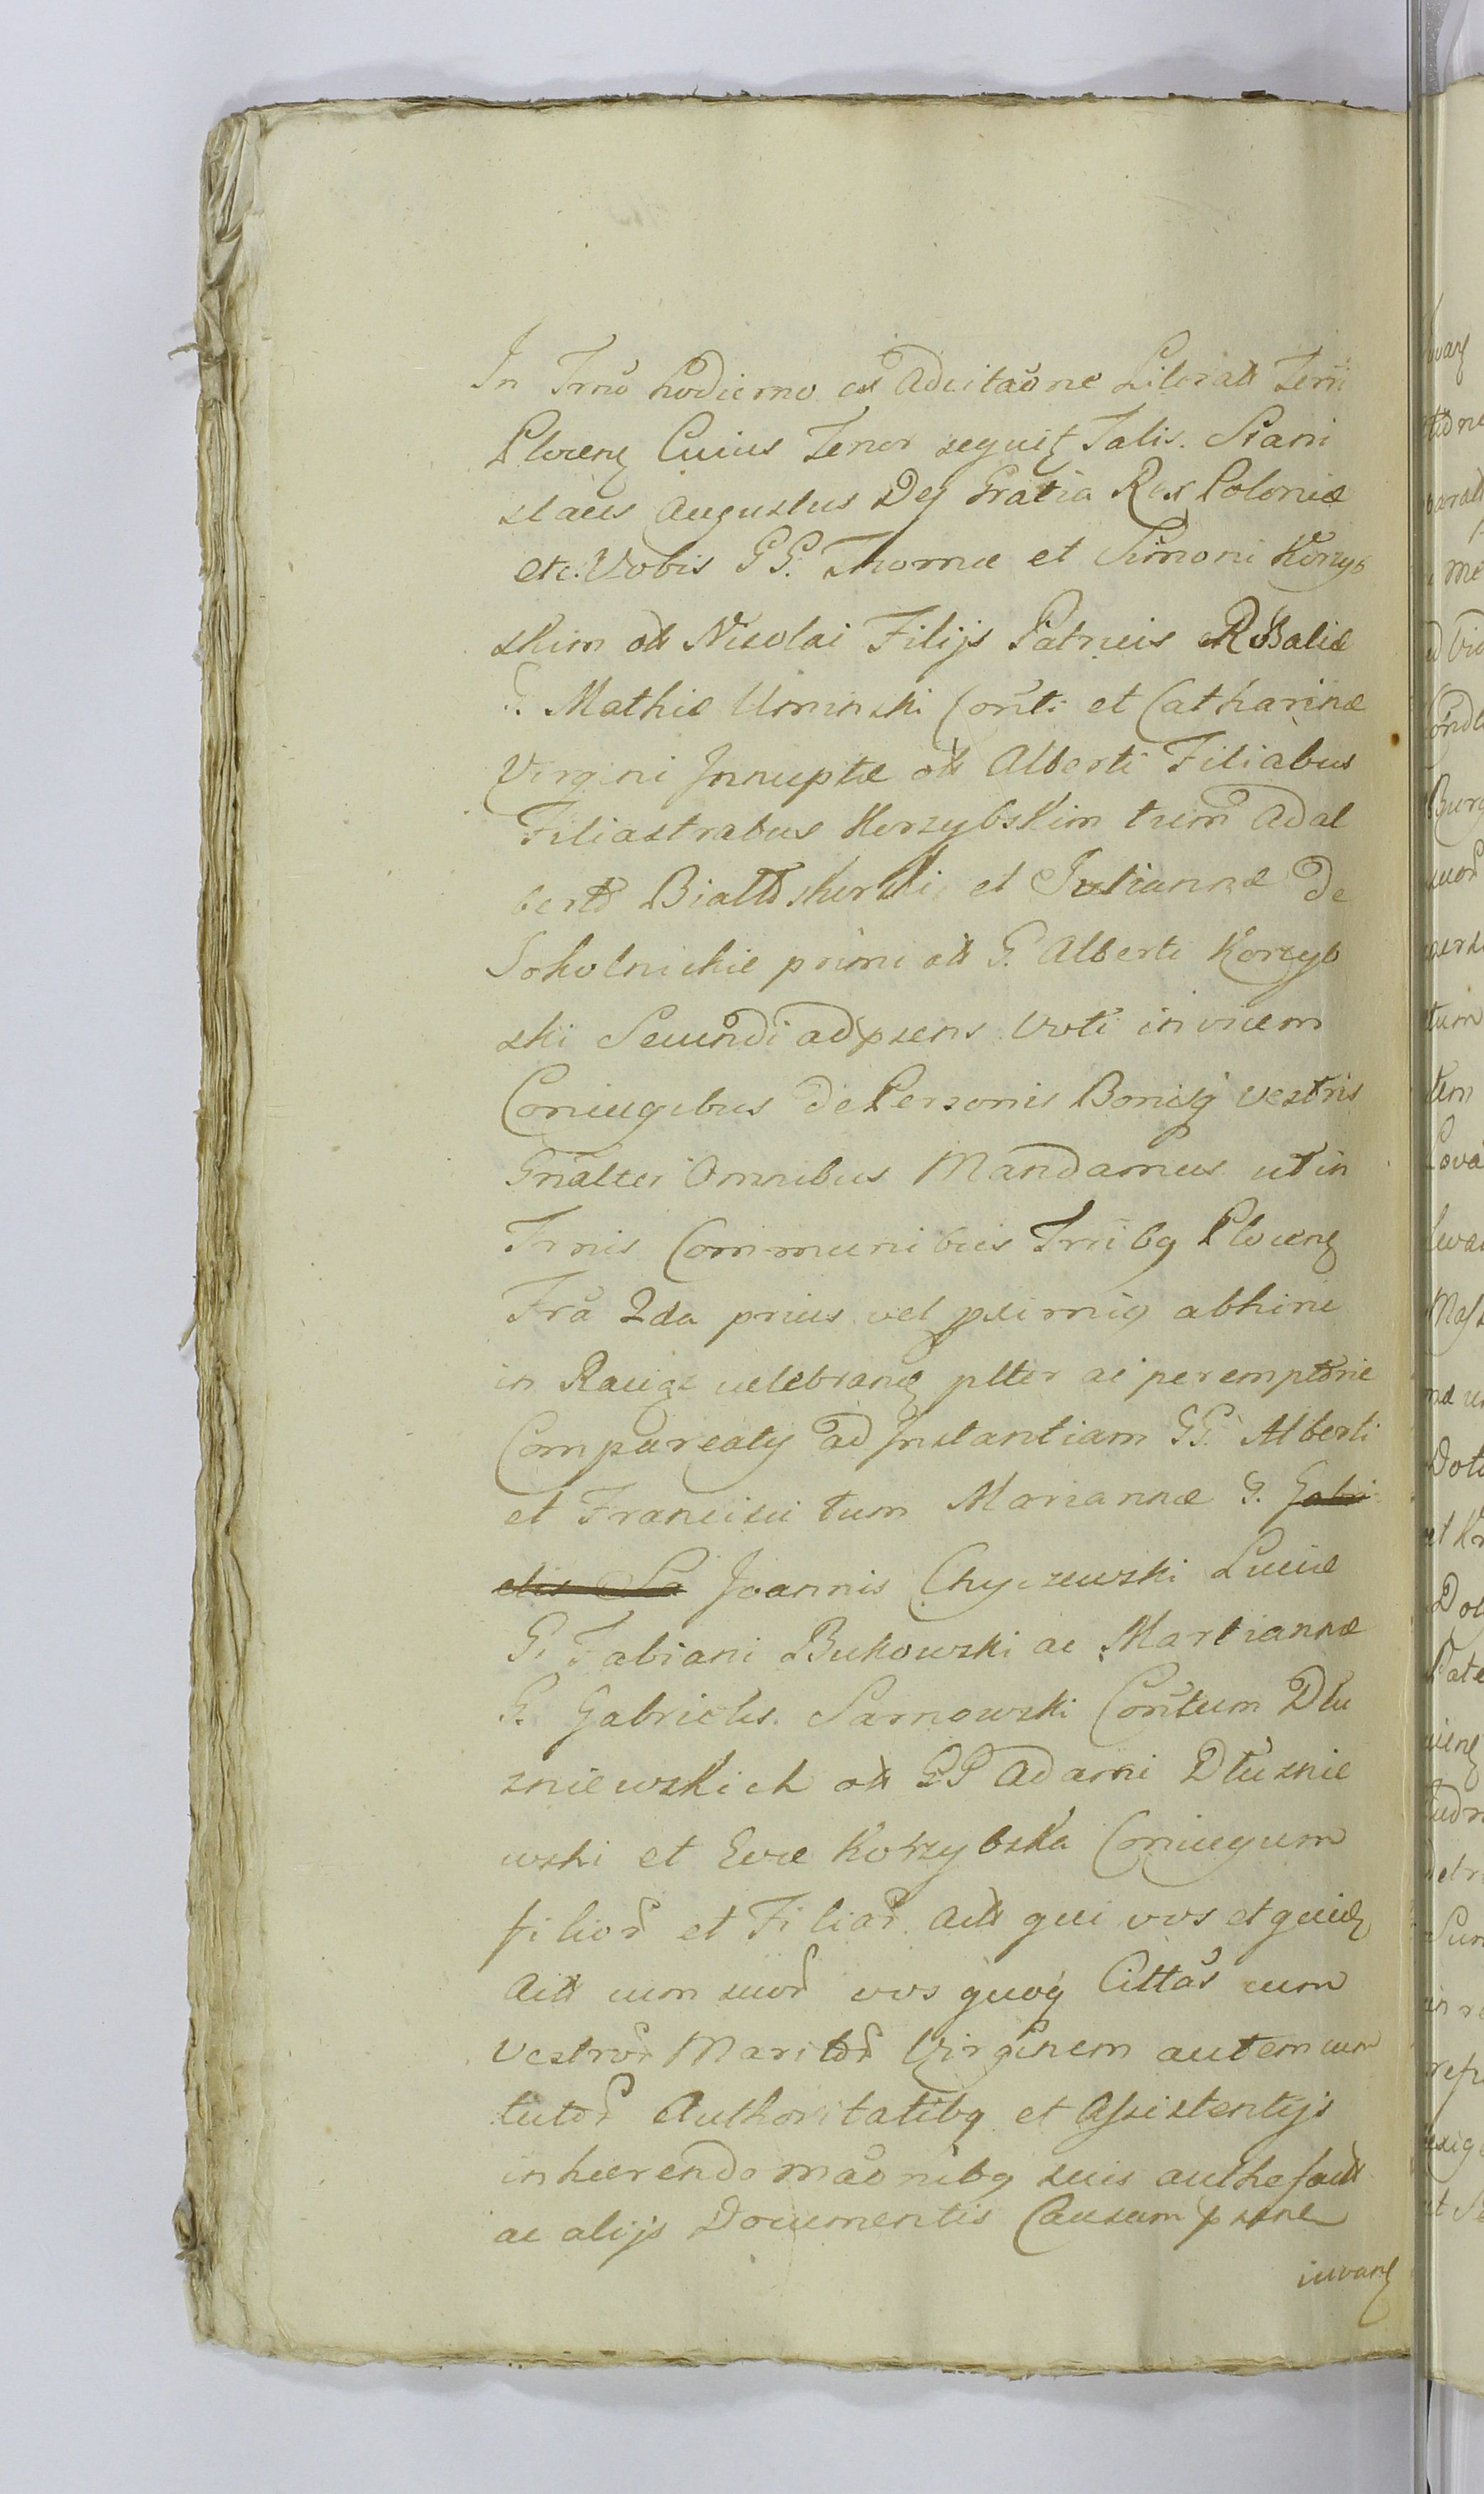 In Trno hodierno ex Adcitaõne Literali Terri
Plocen Cuius Tenor sequit Talis. Stani
slaus Augustus Dej Gratia Rex Poloniæ
etc. Vobis GG. Thomæ et Simoni Korzyb
skim olt Nicolai Filijs Patrueis Rosaliæ
G. Mathiæ Uminski Conti et Catharinæ
Virgini Innuptæ olt Alberti Filiabus
Filiastrabus Korzybskim tum Adal
berto et Juliannæ De
Sokolnickie primi olt G. Alberti Korzyb
ski Secundi ad psens Voti invicem
Coniugibus de Personis Bonisq vestris
Gnalter Omnibus Mandamus ut in
Trnis Communibus Trribq Plocen
Fra 2da prius vel pximiq abhinc
in Raciąz celebran plter ac peremptorie
Compareatis ad Instantiam GG. Alberti
et Francisci tum Mariannæ G. Gabri
elis Sa Joannis Chyczewski Luciæ
G. Fabiani Bukowski ac Martiannæ
G. Gabrielis Sarnowski Contum Dłu
zniewskich olt GG Adami Dłuznie
wski et Evæ Korzybska Coniugum
filior et Filiar Actt qui vos et quid
Actt cum suor vos quoq Cittas cum
Vestror Maritor Virginem autem cum
tutor Authoritatibq et Assistentijs
inhærendo maõnibq suis
ac alijs Documentis Causam psene
iuvan